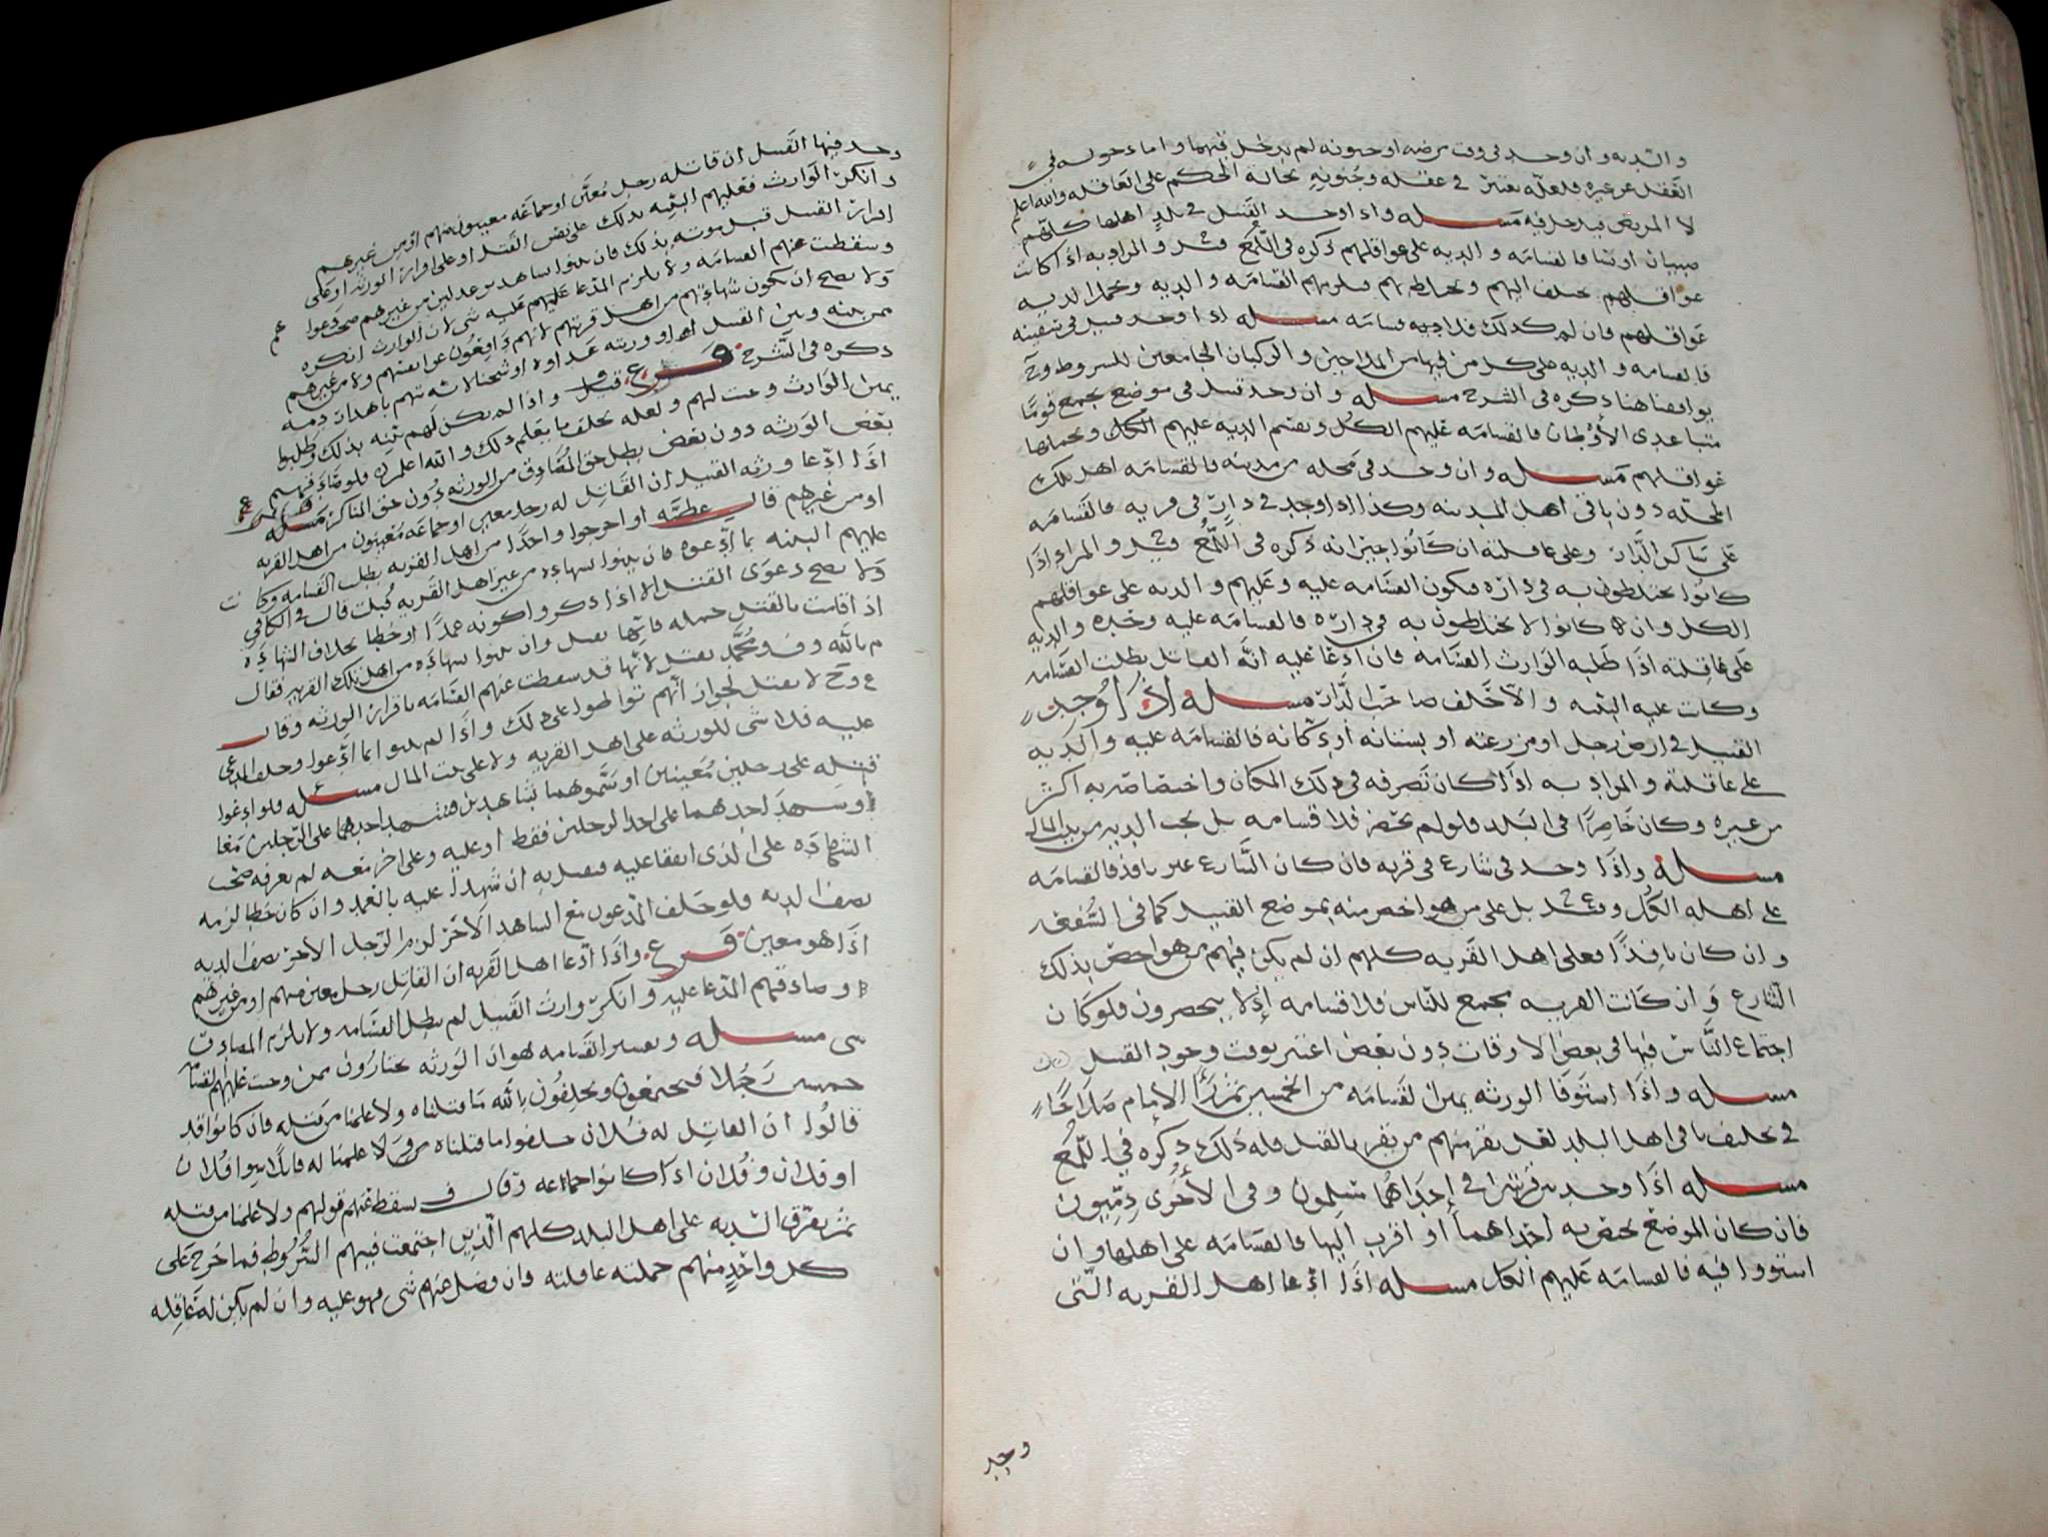 والديه وان وجد في وقت مرضه او جنونه لم يدخل فيهما واما دخوله في
العقل عن غيره فلعله يعتبر في عقله وجنونه بحالة الحكم على العاقله والله اعلم
لا المريض فيدخل فيه مسله واذا وجد القتيل في بلد اهلها كلهم
صبيان او نسا فالقسامه والديه على عواقلهم ذكره في اللمع والمراد به اذا كانت
عواقلهم تختلف اليهم وتخالطهم فيلزمهم القسامه والديه وتحمل الديه
عواقلهم فان لم يكن كذلك فلا ديه ولا قسامه مسله اذا وجد قتيل في سفينه
فالقسامه والديه على كل من فيها من الملاحين والركبان الجامعين للشروط وح
يوافقنا هنا ذكره في الشرح مسله وان وجد قتيل في موضع يجمع قوما
متباعدي الأوطان فالقسامه عليهم الكل وتقسم الديه عليهم الكل وتحملها
عواقلهم مسله وان وجد في محله من مدينه فالقسامه اهل تلك
المحله دون باقي اهل المدينه وكذا اذا وجد في دار في قريه فالقسامه
على ساكن الدار وعلى عاقلته ان كانوا جيرانه ذكره في اللمع والمراد اذا
كانوا يختلطون به في داره فيكون القسامه عليه وعليهم والديه على عواقلهم
الكل وان كانوا لا يختلطون به في داره فالقسامه عليه وحده والديه
على عاقلته اذا طلبه الوارث القسامه فان ادعا عليه انه القاتل بطلت القسامه
وكانت عليه البينه والا حلف صاحب الدار مسله اذا وجد
القتيل في ارض رجل او مزرعته او بستانه او دكانه فالقسامه عليه والديه
على عاقلته والمراد به اذا كان تصرفه في ذلك المكان واختصاصه به اكثر
من غيره وكان حاضرا في البلد فلو لم يحضر فلا قسامه بل تجب الديه من بيت المال
مسله واذا وجد في شارع في قريه فان كان الشارع غير نافذ فالقسامه
على اهله الكل بل على من هو اخص منه بموضع القتيل كما في الشفعه
وان كان نافذا فعلى اهل القريه كلهم ان لم يكن فيهم من هو اخص بذلك
الشارع وان كانت القريه تجمع للناس فلا قسامه اذ لا ينحصرون فلو كان
اجتماع الناس فيها في بعض الاوقات دون بعض اعتبر بوقت وجود القتيل
مسله واذا استوفا الورثه يمين القسامه من الخمسين ثم رأا الإمام صلاحا
في تحليف باقي اهل البلد لعل يقر منهم من يقر بالقتل فله ذلك ذكره في اللمع
مسله اذا وجد بين قريتين في إحداهما مسلمون وفي الأخرى ذميون
فان كان الموضع يختص به احداهما او اقرب اليها فالقسامه على اهلها وان
استووا فيه فالقسامه عليهم الكل مسله اذا ادعا اهل القريه التي
وجد
وجد فيها القتيل ان قاتله رجل معين او جماعه معينون منهم او من غيرهم
وانكر الوارث فعليهم البينه بذلك على نفس القتل او على اقرار الورثه او على
اقرار القتيل قبل موته بذلك فان بينوا بشاهدين عدلين من غيرهم صحت دعواهم
وسقطت عنهم القسامه ولا يلزم المدعا عليهم عليه شي لان الوارث انكره
ولا يصح ان تكون شهادتهم من اهل قريتهم لانهم دافعون عن انفسهم ولا من غيرهم
ممن بينه وبين القتيل او ورثته عداوه او شحنا لانه متهم باهدار دمه
ذكره في الشرح فرع واذا لم يكن لهم بينه بذلك وطلبوا
يمين الوارث وجبت لهم ولعله يحلف ما يعلم ذلك والله اعلم فلو صادقهم
بعض الورثه دون بعض بطل حق المصادق من الورثه دون حق الناكر مسله
اذا ادعا ورثه القتيل ان القاتل له رجل معين او جماعه معينون من اهل القريه
او من غيرهم قال عطيه او اخرجوا واحدا من اهل القريه بطلت القسامه وكانت
عليهم البينه بما ادعوه فان بينوا بشهاده من غير اهل القريه قبلت قال في الكافي
ولا يصح دعوى القتل الا اذا ذكروا كونه عمدا او خطا بخلاف الشهاده
اذا قامت بالقتل جمله فانها تقبل وان بينوا بشهاده من اهل تلك القريه فقال
م بالله وف ومحمد تقبل لانها قد سقطت عنهم القسامه باقرار الورثه وقال
ع وح لا تقبل لجواز انهم تواطوا على ذلك واذا لم يبينوا بما ادعوا وحلف المدعى
عليه فلا شي للورثه على اهل القريه ولا على بيت المال مسله فلو ادعوا
قتله على رجلين معينين او سموهما بشاهدين فشهد احدهما على الرجلين معا
وشهد احدهما على احد الرجلين فقط او عليه وعلى اخر معه لم يعرفه صحت
الشهاده على الذي اتفقا عليه فيقتل به ان شهدا عليه بالعمد وان كان خطا لزمه
نصف الديه فلو حلف المدعون مع الشاهد الاخر لزم الرجل الاخر نصف الديه
اذا هو معين فرع واذا ادعا اهل القريه ان القاتل رجل معين منهم او من غيرهم
وصادقهم المدعا عليه وانكر وارث القتيل لم تبطل القسامه ولا يلزم المصادق
شي مسله وتفسير القسامه هو ان الورثه يختارون ممن وجبت عليهم القسامه
خمسين رجلا فيجتمعون ويحلفون بالله ما قتلناه ولا علمنا من قتله فان كانوا قد
قالوا ان القاتل له فلان حلفوا ما قتلناه ولا علمنا له قاتلا سوا فلان
او فلان وفلان اذا كانوا جماعه وقال ف يسقط عنهم قولهم ولا علمنا من قتله
ثم يفرق الديه على اهل البلد كلهم الذين اجتمعت فيهم الشروط فما خرج على
كل واحد منهم حملته عاقلته وان فضل عنهم شي فهو عليه وان لم يكن له عاقله